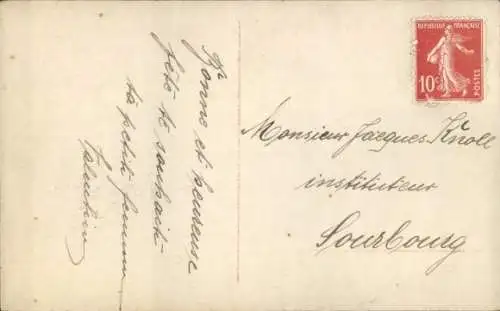 Bonne et heureuse
fête te souhaite
ta petite femme
RÉPUBLIQUE FRANÇAISE
10c
POSTES
Monsieur Jacques Knoll
instituteur
Sourbourg